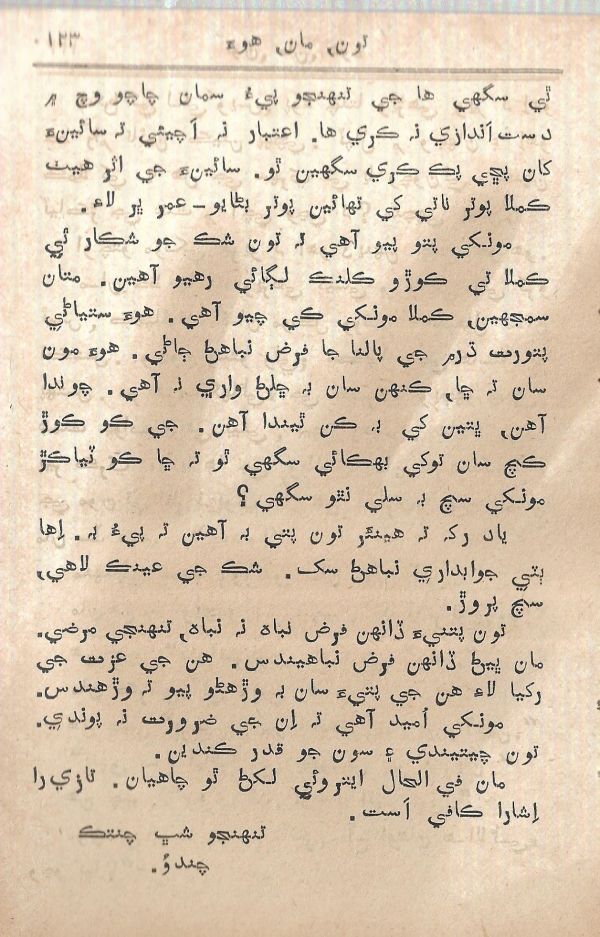 تون, مان, هوءَ
١٢٣
ٿي سگهي ها جي تنهنجو پيءُ سمان چاچو وچ ۾
دست اندازي نہ ڪري ها. اعتبار نہ اَچيئي تہ سائينءَ
کان پڇي پڪ ڪري سگهين ٿو. سائينءَ جي اثر هيٺ
ڪملا پوٽر ناتي کي ٺهائين پوٽر بڻايو – عمر ڀر لاءِ.
مونکي پتو پيو آهي تہ تون شڪ جو شڪار ٿي
ڪملا تي ڪوڙو ڪلنڪ لڳائي رهيو آهين. متان
سمجهين, ڪملا مونکي ڪي چيو آهي. هوءَ ستياڻي
پتورت ڌرم جي پالنا جا فرض نباهڻ ڄاڻي. هوءَ مون
سان تہ ڇا, ڪنهن سان بہ ڇلڻ واري نہ آهي. چوندا
آهن, ڀتين کي بہ ڪن ٿيندا آهن. جي ڪو ڪوڙ
ڪچ سان توکي ڀهڪائي سگهي ٿو تہ ڇا ڪو ٽياڪڙ
مونکي سچ بہ سلي نٿو سگهي؟
ياد رک تہ هينئر تون پتي بہ آهين تہ پيءُ بہ. اِها
ٻٽي جوابداري نباهڻ سک. شڪ جي عينڪ لاهي,
سچ پروڙ.
تون پتنيءَ ڏانهن فرض نباه نہ نباه, تنهنجي مرضي.
مان ڀيڻ ڏانهن فرض نباهيندس. هن جي عزت جي
رکيا لاءِ هن جي پتيءَ سان بہ وڙهڻو پيو تہ وڙهندس.
مونکي اُميد آهي تہ اِن جي ضرورت نہ پوندي.
تون چيتيندي ۽ سون جو قدر ڪندين.
مان في الحال ايتروئي لکڻ ٿو چاهيان. تازي را
اِشارا ڪافي اَست.
تنهنجو شڀ چنتڪ
چندوُ.